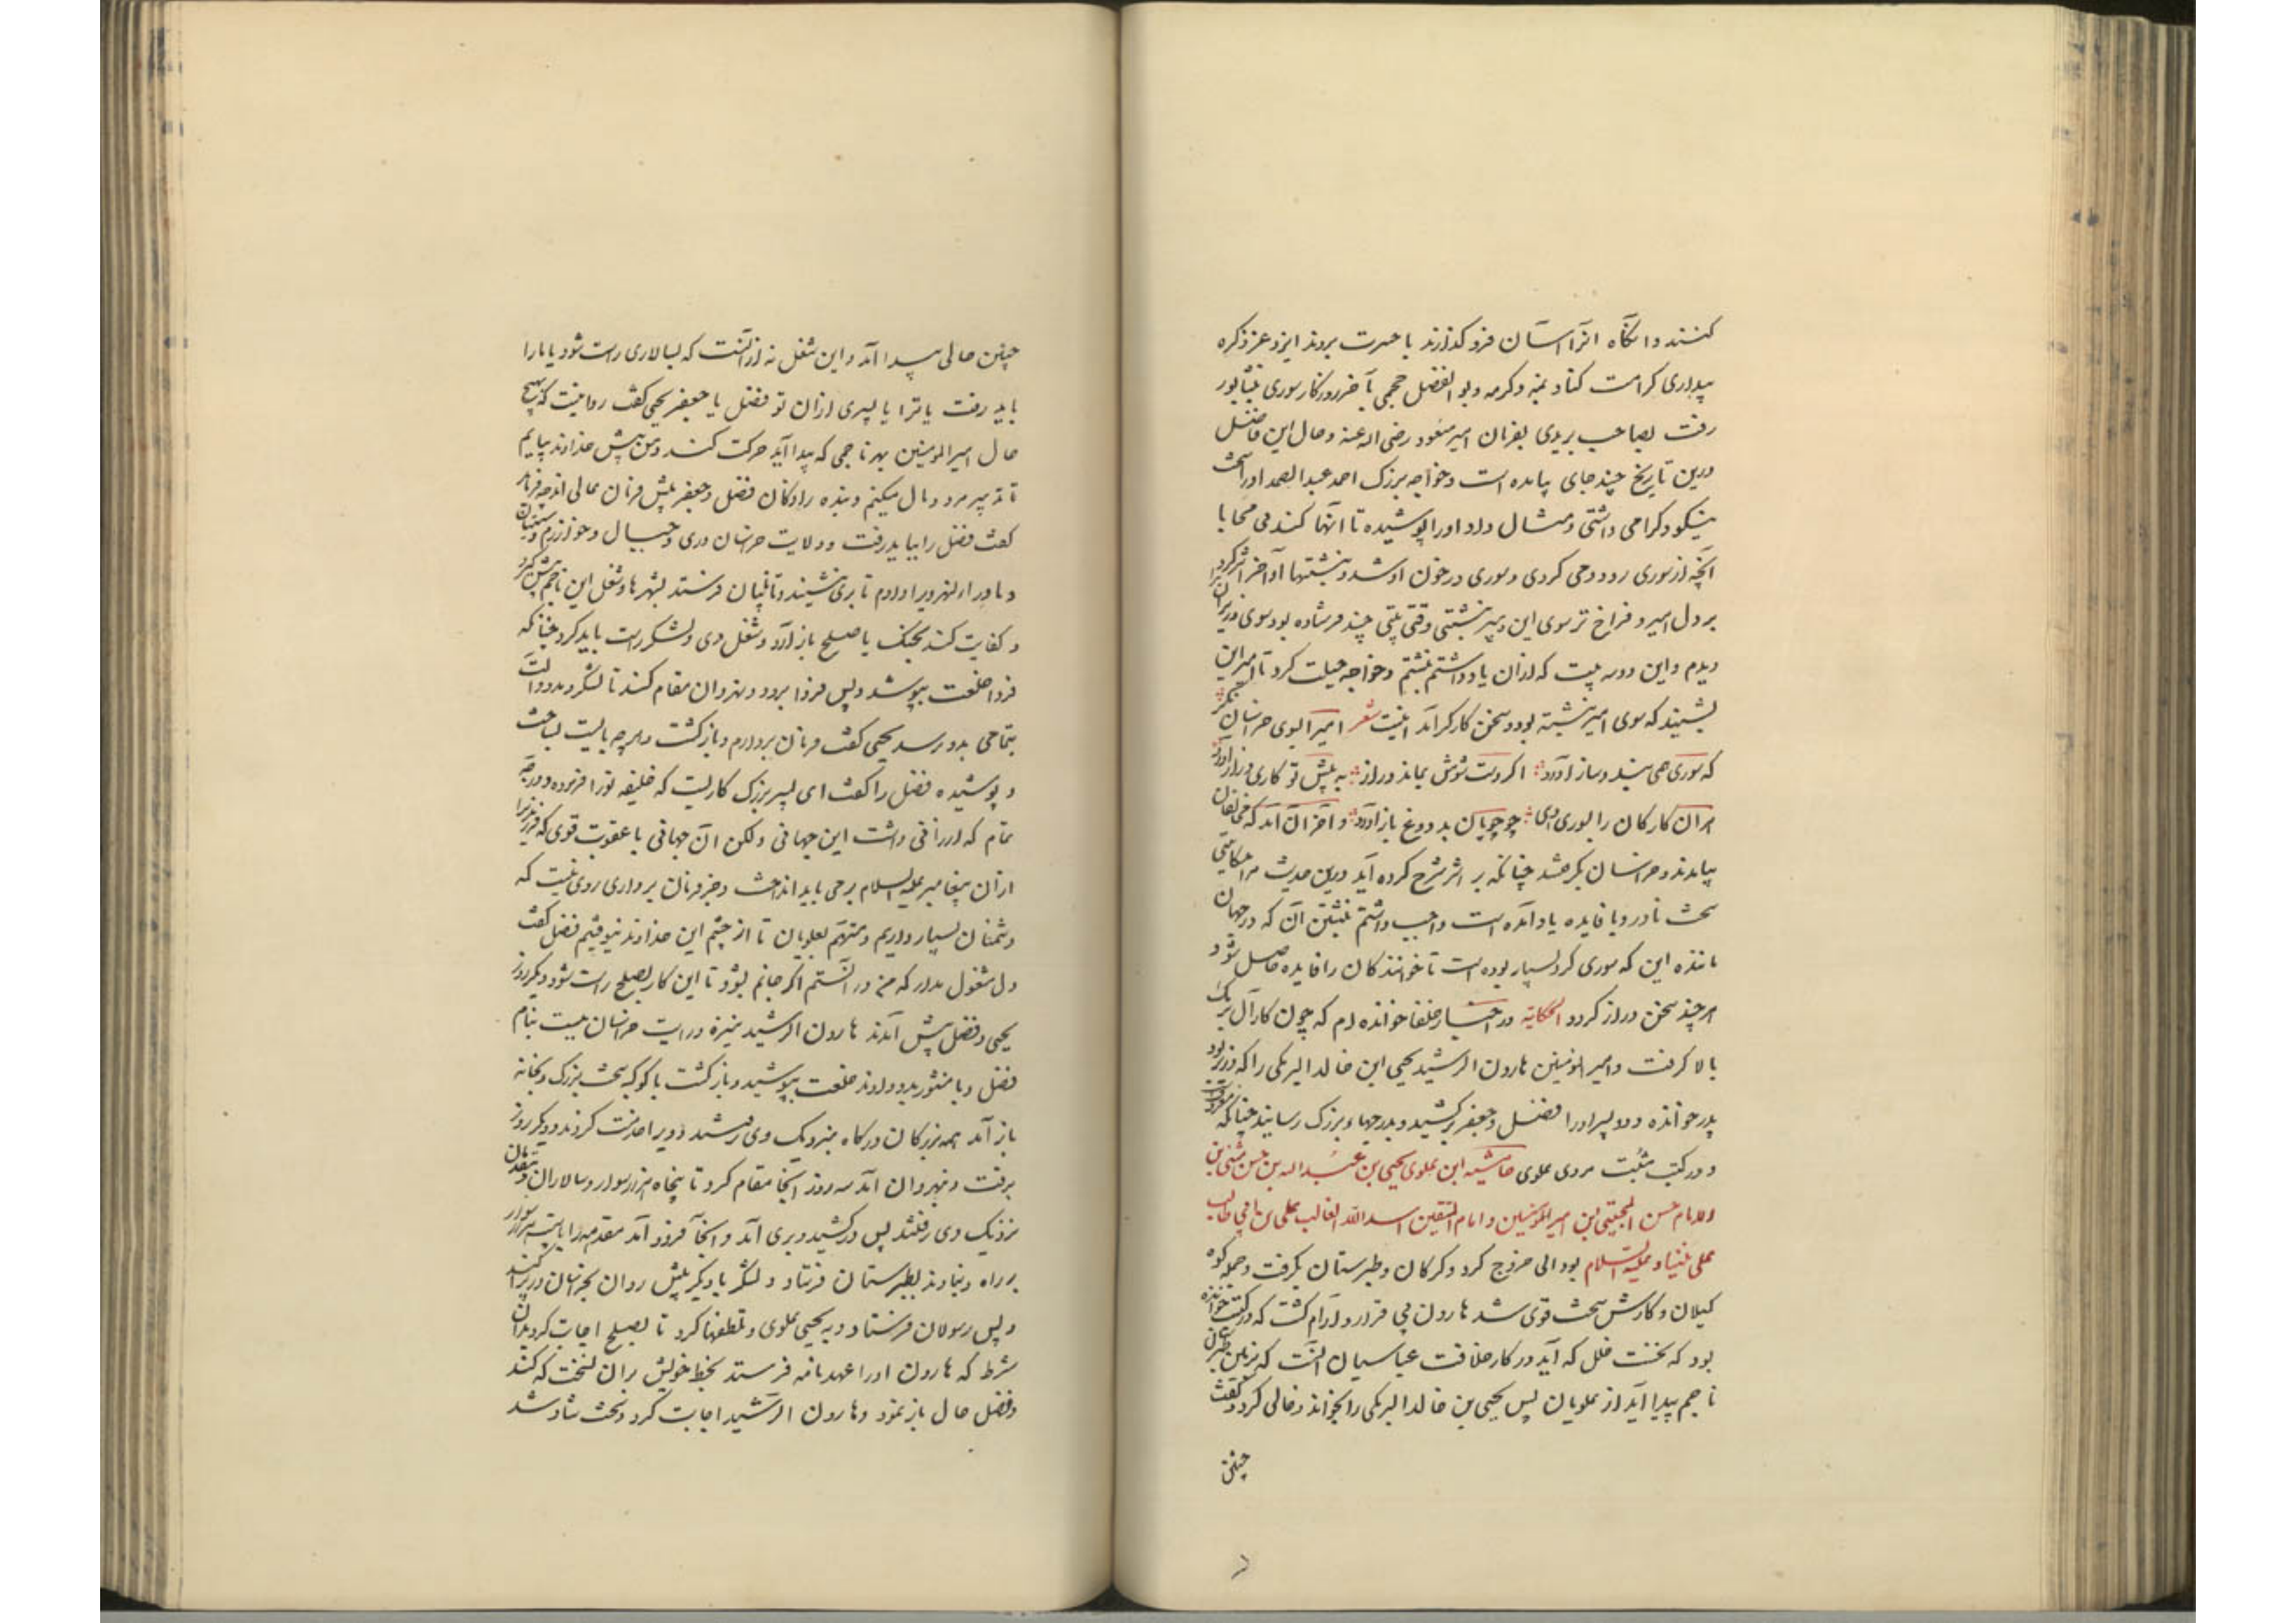 کنند وانگاه انرا آسان فرو گذارند با حسرت بروند ایزد عز ذکره
بیداری کرامت کناد بمنه وکرمه وبو الفضل جمحی بآخر روزگار سوری بنشابور
رفت بصاحب بریدی بفرمان امیر مسعود رضی اله عنه وحال این فاضل
درین تاریخ چند جای بیامده است وخواجه بزرک احمد عبد الصمد اورا سخت
نیکو وگرامی داشتی ومثال داد اورا پوشیده تا انها کند بی محابا
آنچه از سوری رود وحی کردی وسوری در خون او شد ونبشتها او آخر اثر کرد
بر دل امیر وفراخ تر سوی این وبیر نبشتی وقتی بیتی چند فرستاده بود سوی وزیر آن را
دیدم واین دو سه بیت که ازان یاد داشتم نبشتم وخواجه حیلت کرد تا امیر این
بشنید که سوی امیر نبشته بود وسخن کارگر آمد اینست شعر امیرا بسوی خراسان نگر
که سوری همی بند وساز آورد اگر دست شومش بماند دراز به پیش تو کاری دراز آورد
هر آن کارکان را بسوری دهی چو چوپان بد دوغ باز آورد و آخر آن آمد که مخالفان
بیامدند وخراسان بگرفتند چنانکه بر اثر شرح کرده آید درین حدیث مرا حکایتی
سخت نادر وبا فایده یاد آمده است واجب داشتم نبشتن آن که در جهان
مانده این که سوری کرد بسیار بوده است تا خوانندکان را فایده حاصل شود و
هر چند سخن دراز کردد الحکایة در اخبار خلفا خوانده ام که چون کار آل برمک
بالا گرفت وامیر المومنین هارون الرشید یحیی ابن خالد البرمکی را که وزیر بود
پدر خوانده ودو پسر اورا فضل وجعفر برکشید وبدرجهاء بزرک رسانید چنانکه معروفست
و در کتب مثبت مردی علوی حاشیه این علوی یحیی بن عبد اله بن حسن مثنی بن
الامام حسن المجتبی بن امیر المومنین وامام المتقین اسد الله الغالب علی بن ابی طالب
علی نبینا وعلیه السلام بود الی خروج کرد وکرکان وطبرستان بگرفت وجمله کوه
کیلان وکارش سخت قوی شد هارون بی قرار وآرام گشت که در کتب خوانده
بود که نخست خلل که آید در کار خلافت عباسیان آنست که بزمین طبرستان
ناجم پیدا آید از علویان پس یحیی بن خالد البرمکی را بخواند وخالی کرد وگفت
چنین
چنین حالی پیدا آمد واین شغل نه ازآنست که بسالاری راست شود یا ما را
باید رفت یا ترا یا پسری ازان تو فضل یا جعفر یحیی گفت روا نیست که بهیچ
حال امیر المومنین بهر ناجمی که پیدا آید حرکت کند ومن پیش خداوند بپایم
تا تدبیر مرد ومال میکنم وبنده زادگان فضل وجعفر پیش فرمان عالی اند چه فرماید
گفت فضل را بباید رفت وولایت خراسان وری وجبال وخوارزم وسیستان
وماوراء النهر ویرا دادم تا بری نشیند ونائبان فرستد بشهرها وشغل این ناجم پیش گیرد
وکفایت کند بجنک یا صلح باز آرد وشغل وی ولشکر راست باید کرد چنانکه
فردا خلعت بپوشد وپس فردا برود وبنهروان مقام کند تا لشکر ومدد وآلت
بتمامی بدو رسد یحیی گفت فرمان بردارم وبازگشت وهر چه بایست بساخت
و پوشیده فضل را گفت ای پسر بزرک کاریست که خلیفه ترا فرموده ودرجه
تمام که ارزانی داشت این جهانی ولکن آن جهانی با عقوبت قوی که فرزندی را
ازان پیغامبر علیه السلام برمی باید انداخت وجز فرمان برداری روی نیست که
دشمنان بسیار داریم ومتهم بعلویان تا از چشم این خداوند نیوفتیم فضل گفت
دل مشغول مدار که من در ایستم اگر جانم بشود تا این کار بصلح راست شود ودیگر روز
یحیی وفضل پیش آمدند هارون الرشید نیزه ورایت خراسان ببست بنام
فضل وبا منشور بدو دادند خلعت بپوشید وبازگشت با کوکبه سخت بزرک وبخانه
باز آمد همه بزرکان درکاه بنزدیک وی رفتند وویرا خدمت کردند ودیگر روز
برفت وبنهروان آمد سه روز آنجا مقام کرد تا پنجاه هزار سوار وسالاران ومقدمان
نزدیک وی رفتند پس درکشید وبری آمد وآنجا فرود آمد مقدمه را با بیست هزار سوار
بر راه دنباوند بطبرستان فرستاد ولشکر با دیگر پیش روان بخراسان در پراکند
وپس رسولان فرستاد وبه یحیی علوی وتلطفها کرد تا بصلح اجابت کرد بدان
شرط که هارون اورا عهدنامه فرستد بخط خویش بران نسخت که کند
وفضل حال باز نمود وهارون الرشید اجابت کرد وسخت شاد شد